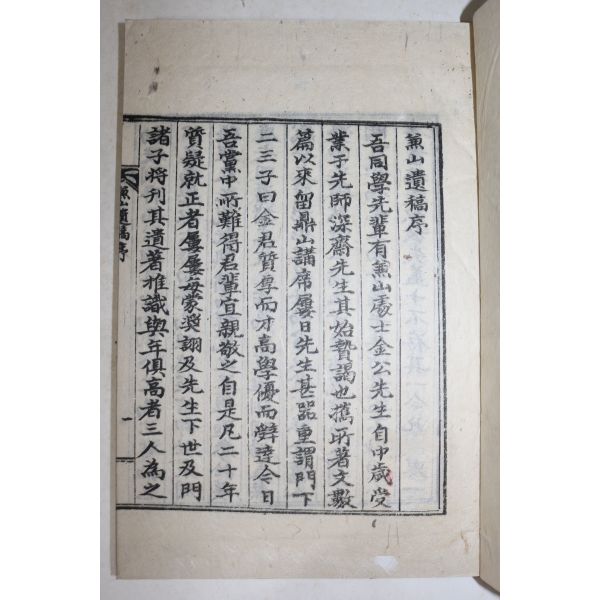 兼山遺稿序
吾同學先輩有兼山處士金公先生自中歲受
業于先師深齋先生其始贄謁也攜所著文數
篇以來留鼎山講席屢日先生甚器重謂門下
二三子曰金君質厚而才高學優而辭達今日
吾黨中所難得君輩宜親敬之自是凡二十年
質疑就正者屢屢每蒙奬詡及先生下世及門
諸子將刊其遺著推識與年俱高者三人為之
兼山遺稿序
一